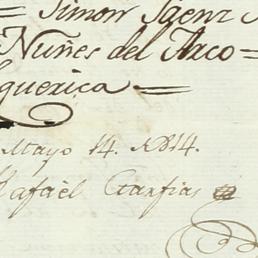 = Simon Saenz
Nuñes del Arco =
guerica =
Mayo 14. 1814.
Rafaèl Garfias